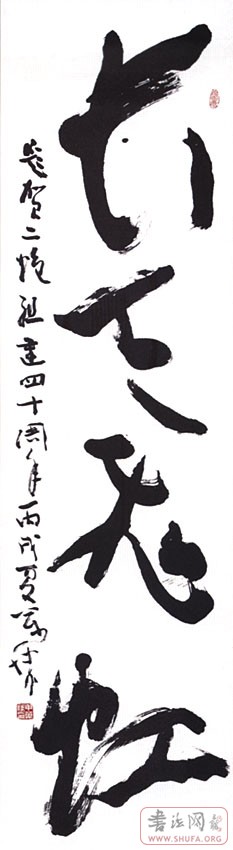 天飞虹
贺二炮组建四十周年丙戌夏
书法网
WWW.SHUFA.ORG